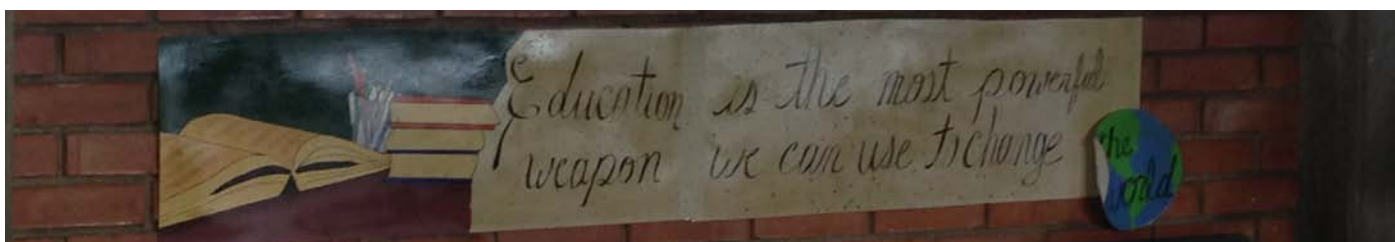 Education is the most powerful
weapon we can use to change
the
world